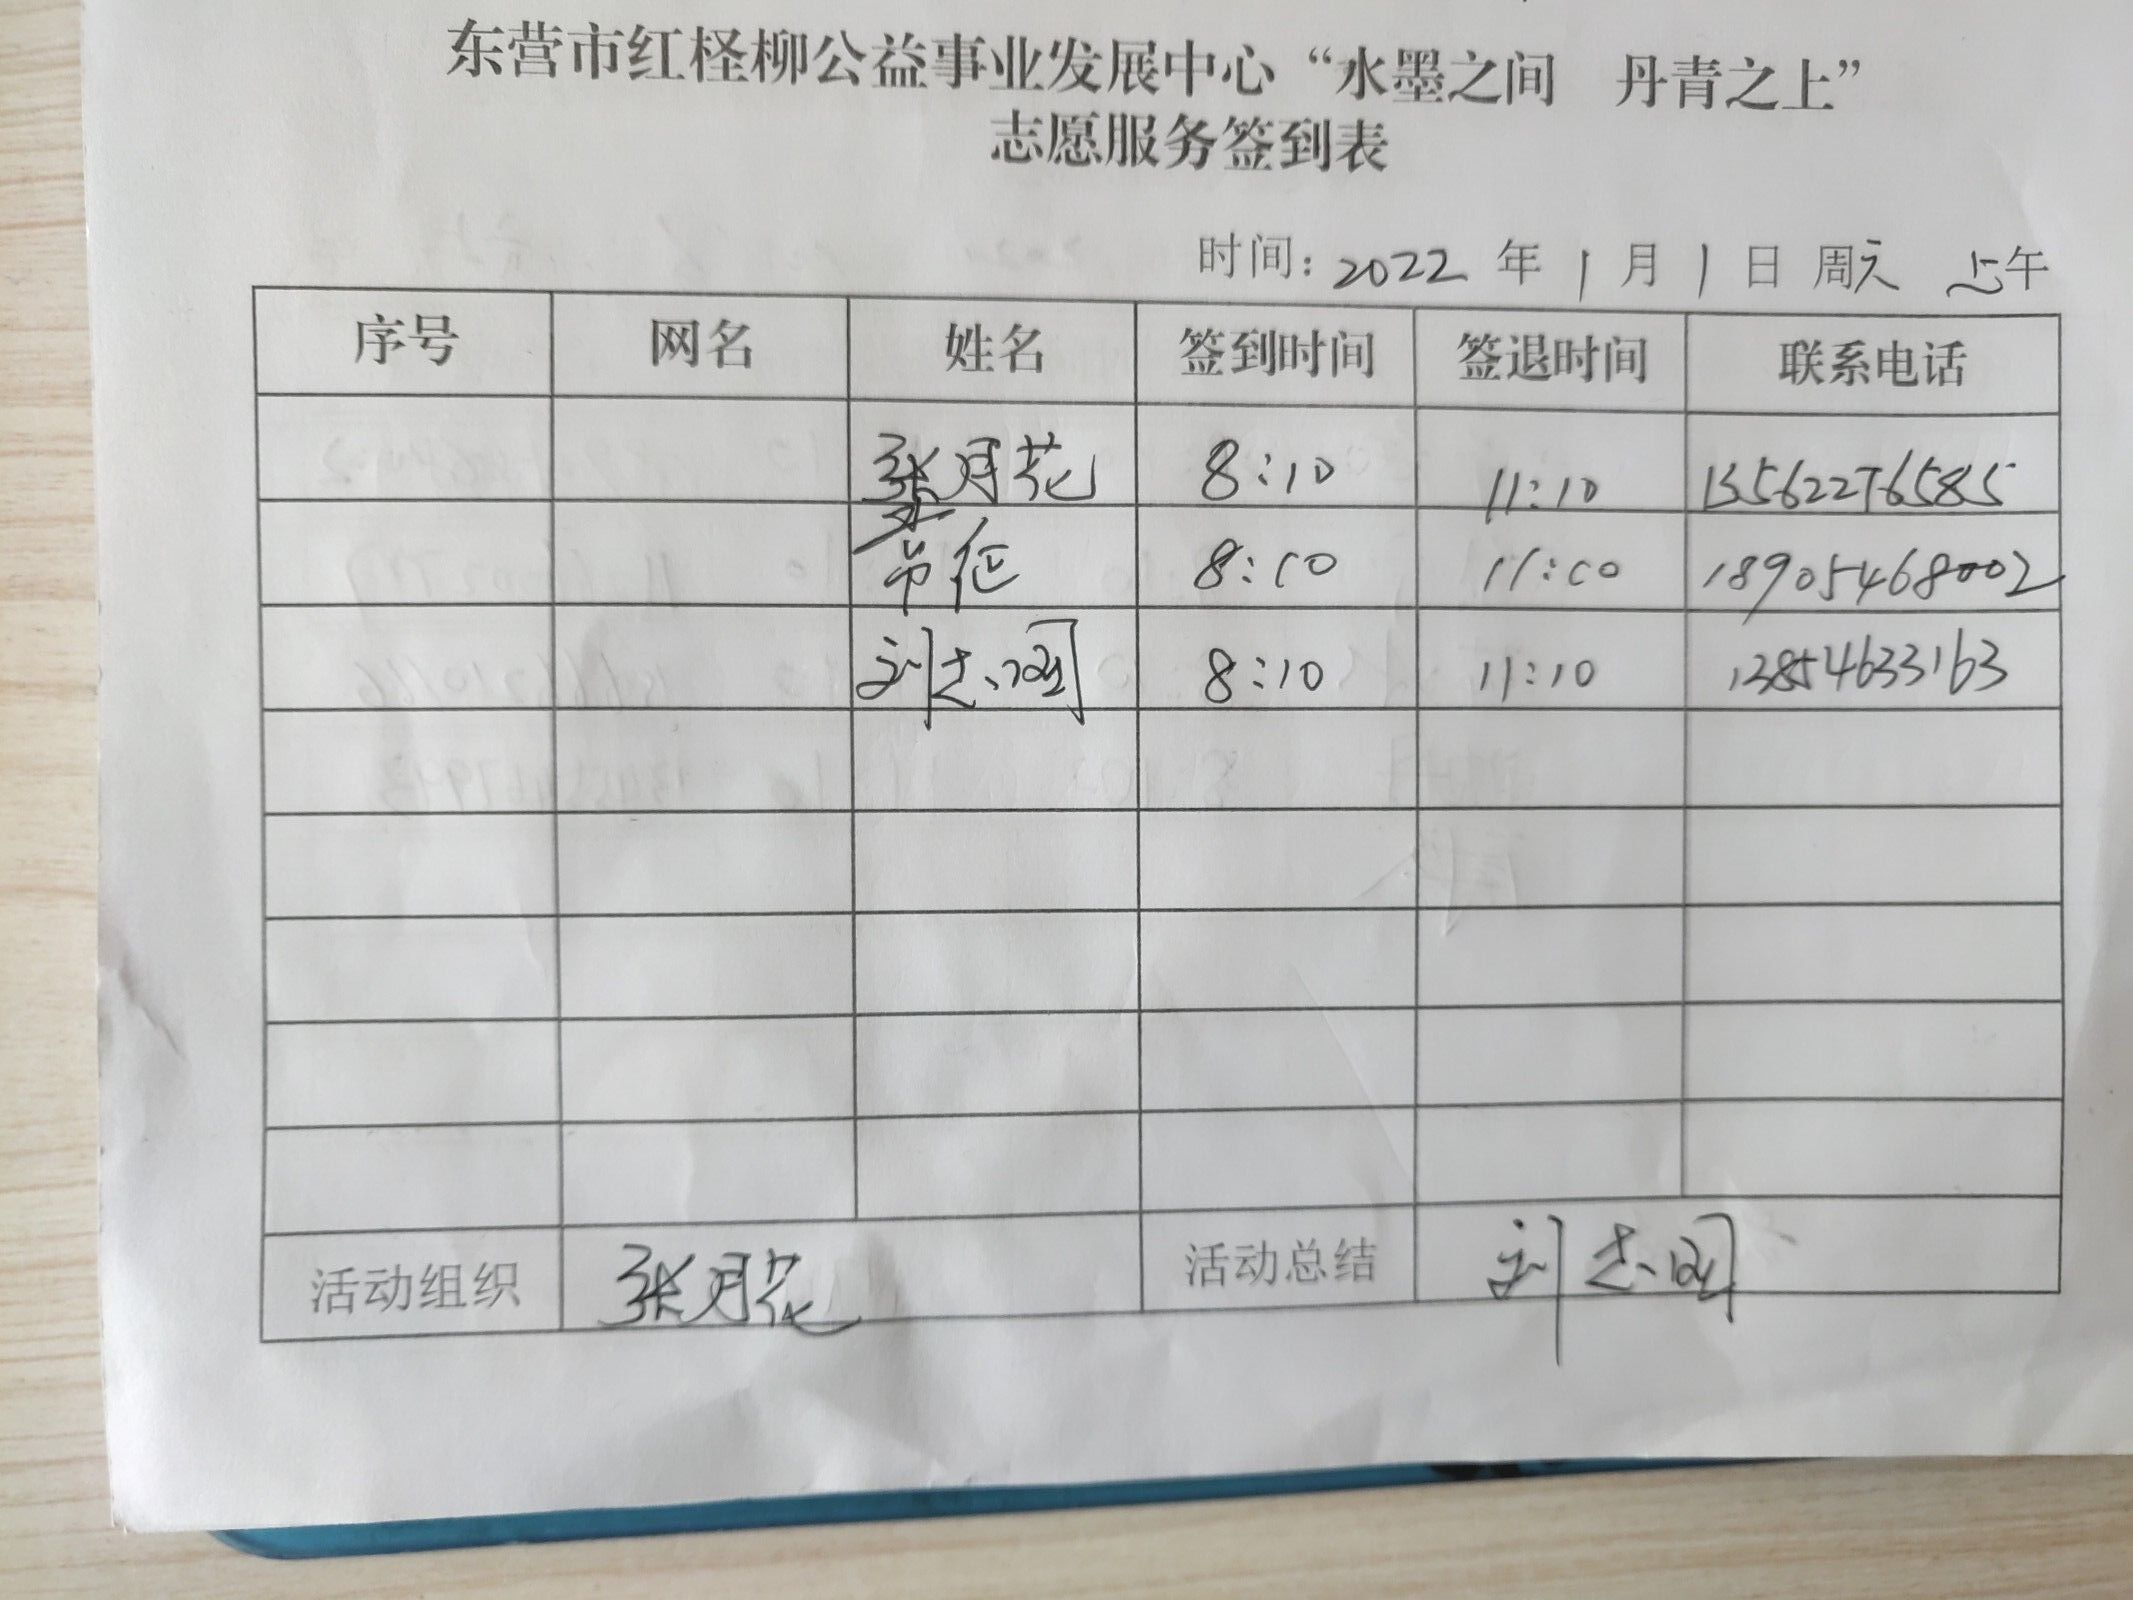 东营市红柽柳公益事业发展中心“水墨之间 丹青之上”
志愿服务签到表
时间：2022 年 1 月 1 日 周六 上午
序号 网名 姓名 签到时间 签退时间 联系电话
张月花 8:10 11:10 13562276585
8:10 11:10 18905468002
刘志刚 8:10 11:10 13854633163
活动组织 张月花 活动总结 刘志刚